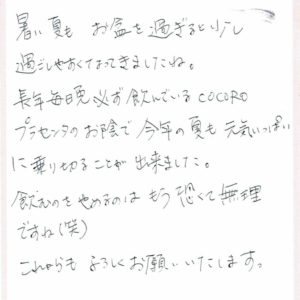 暑い夏も お盆を過ぎると少し
過ごしやすくなってきましたね。
長年毎日晩必ず飲んでいるCOCORO
プラセンタのお陰で今年の夏も元気いっぱい
に乗り切ることが出来ました。
飲むのをやめるのはもう恐くて無理
ですね(笑)
これからもよろしくお願いいたします。